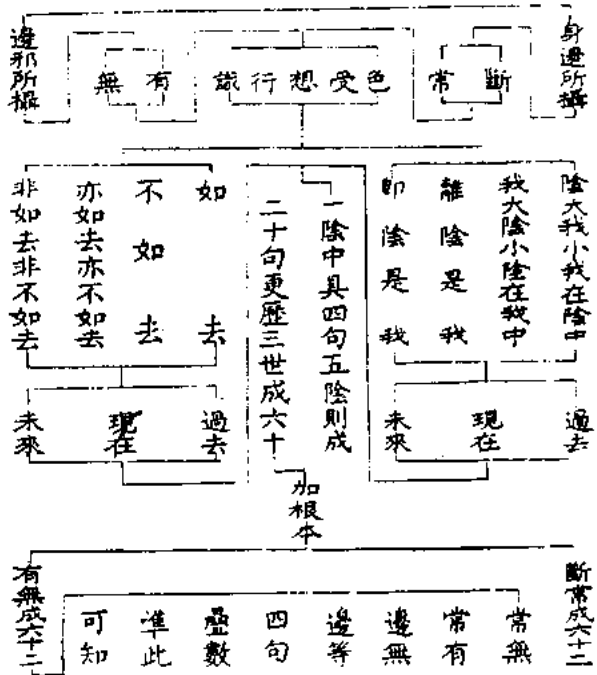 身邊所攝
斷
常
色
受
想
行
識
有
無
邊邪所攝
陰大我小我在陰中
我大陰小陰在我中
離陰是我
即陰是我
過去
現在
未來
一陰中具四句五陰則成
二十句更歷三世成六十
如去
不如去
亦如去亦不如去
非如去非不如去
過去
現在
未來
加根本
斷常成六十二
常無
常有
邊無
邊等
四句
疊數
準此
可知
有無成六十二